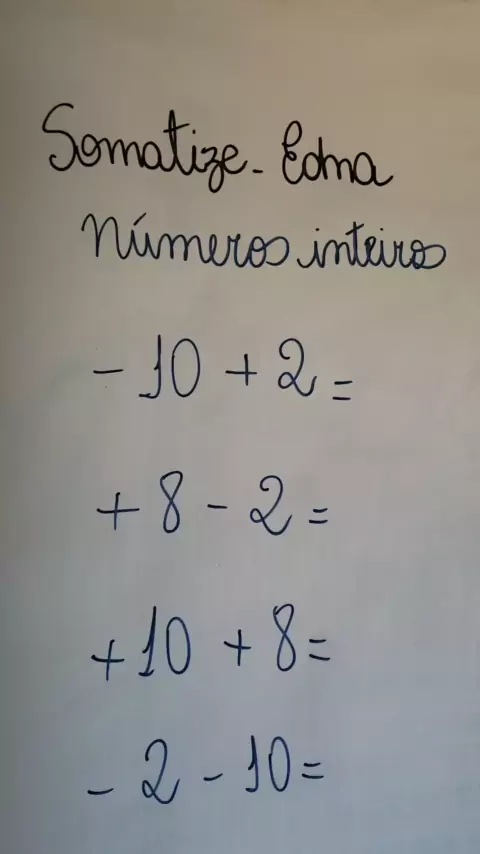 Somatize - Edna
Números inteiros
- 10 + 2 =
+ 8 - 2 =
+ 10 + 8 =
- 2 - 10 =